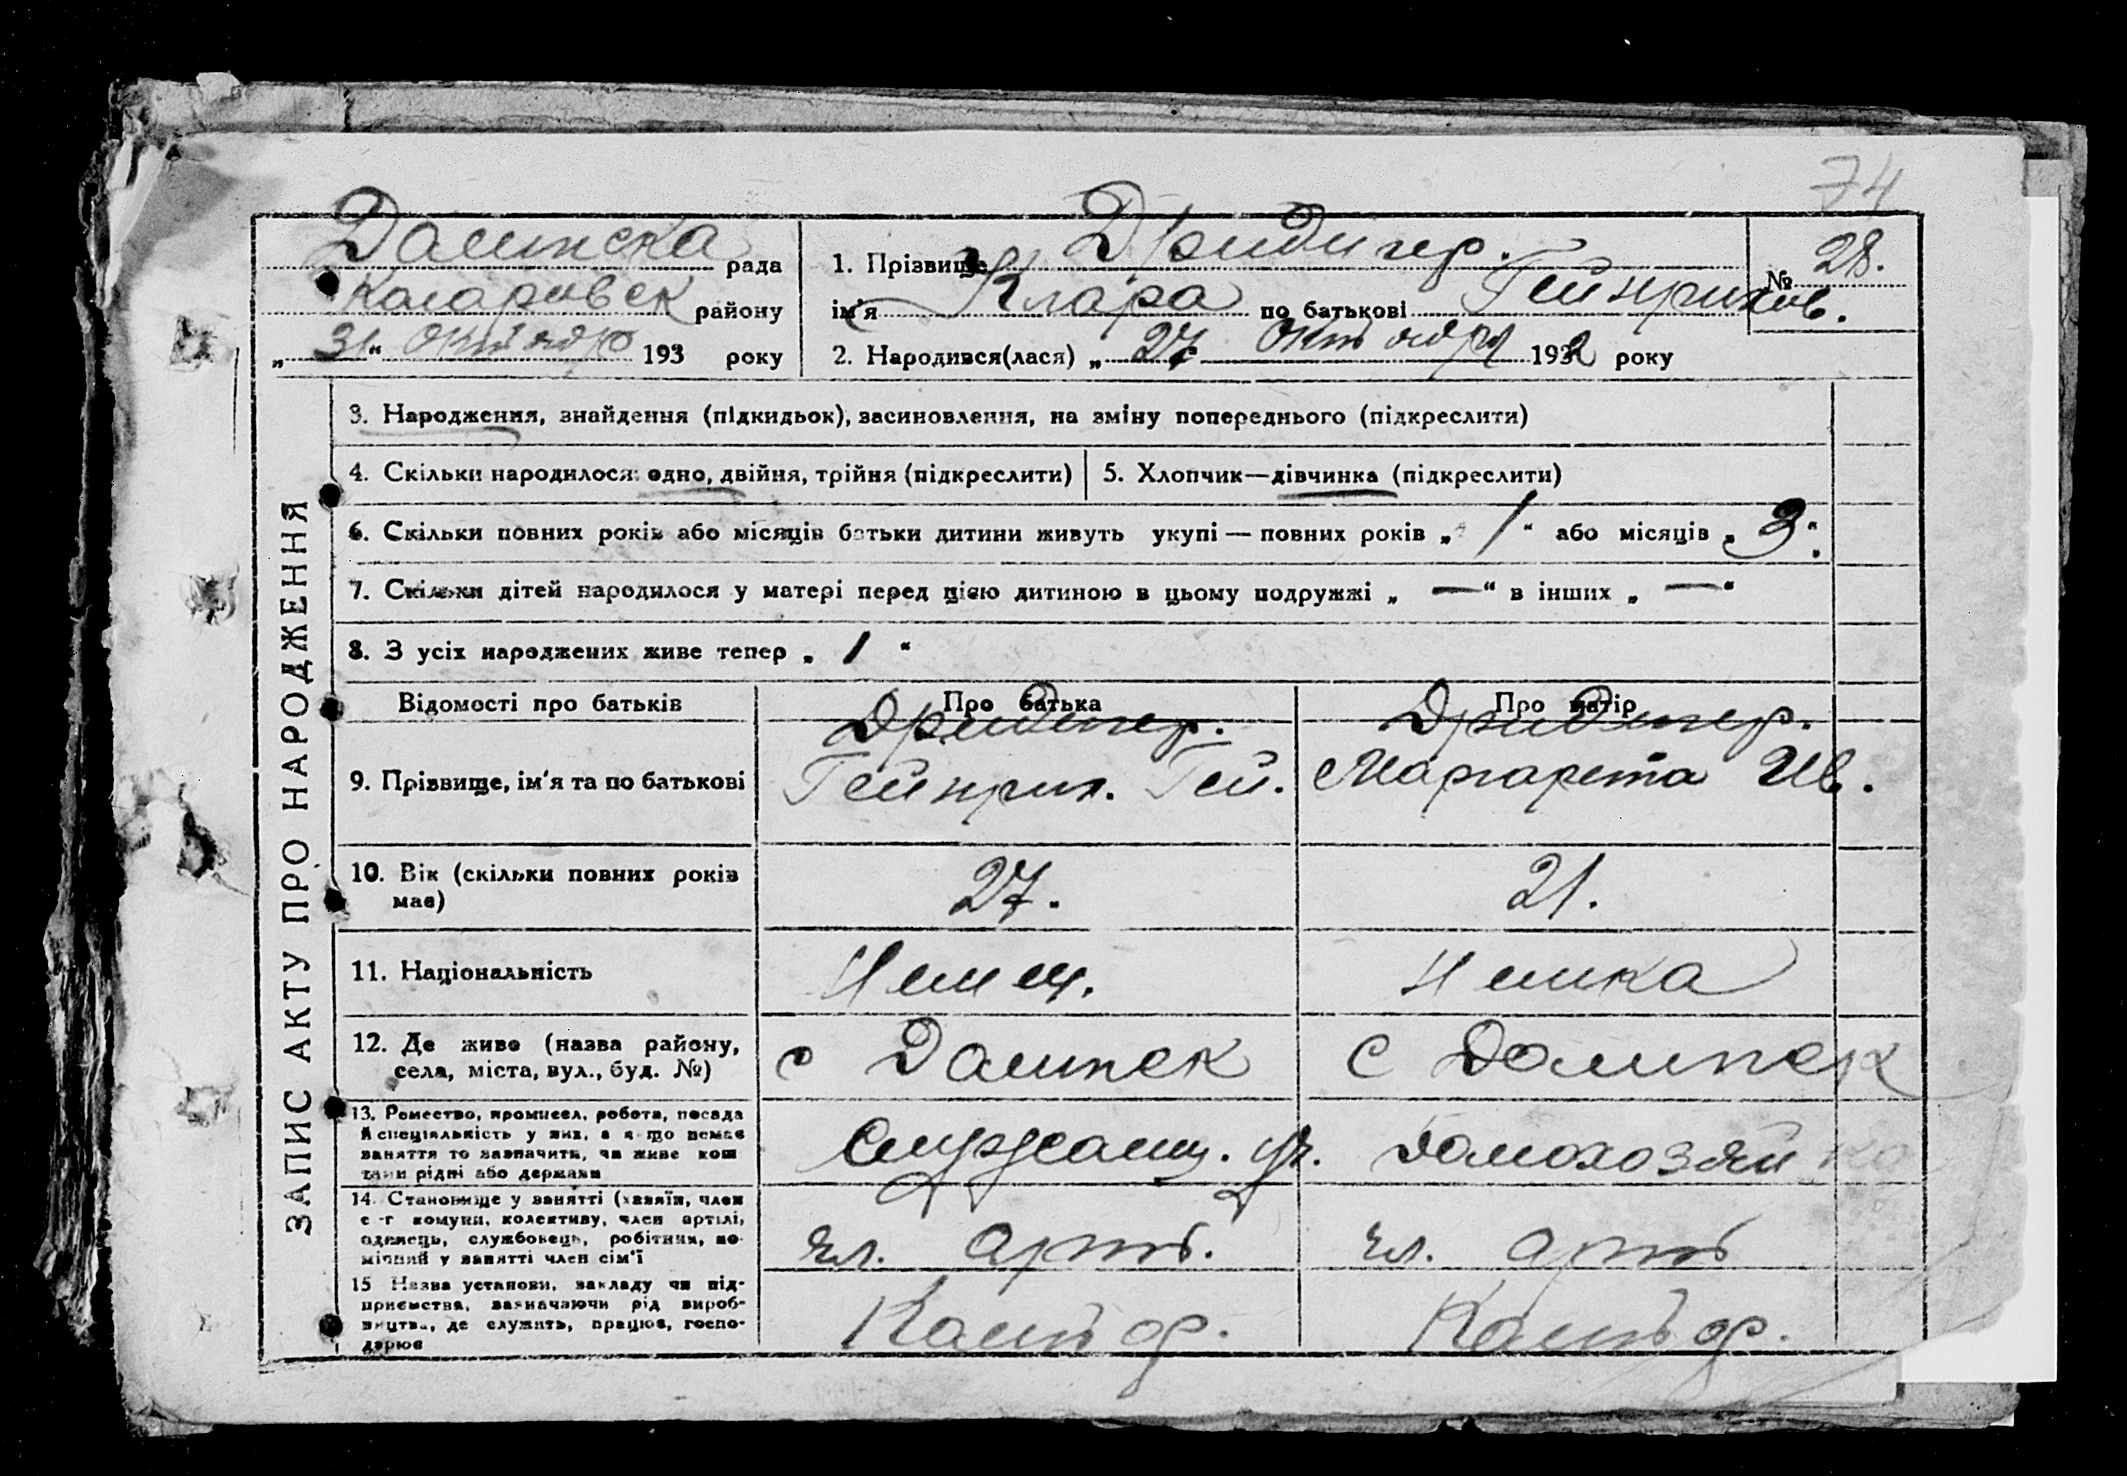 74
Долинска рада
Комаровск району
„ 31 “ октября 193 року
1. Прізвище Дридигер.
№ 28.
ім'я Клара по батькові Гейнрихов.
2. Народився(лася) „ 27 октября 1932 року
ЗАПИС АКТУ ПРО НАРОДЖЕННЯ
3. Народження, знайдення (підкидьок), засиновлення, на зміну попереднього (підкреслити)
4. Скільки народилося: одно, двійня, трійня (підкреслити)
5. Хлопчик—дівчинка (підкреслити)
6. Скільки повних років або місяців батьки дитини живуть укупі — повних років „ 1 “ або місяців „ 3 “.
7. Скільки дітей народилося у матері перед цією дитиною в цьому подружжі „ — “ в інших „ — “
8. З усіх народжених живе тепер „ 1 “
Відомості про батьків
Про батька
Про матір
9. Прізвище, ім'я та по батькові
Дридигер.
Гейнрих. Гей.
Дридигер.
Маргарета Ив.
10. Вік (скільки повних років
має)
27.
21.
11. Національність
Немец.
Немка
12. Де живе (назва району,
села, міста, вул., буд. №)
с Долинск
с Долинск
13. Ремество, промисел, робота, посада
й спеціяльність у них, а якщо немає
заняття то зазначити, чи живе кош
тами рідні або держави
Служащ. уч.
домохозяйка
14. Становище у занятті (хазяїн, член
с-г комуни, колективу, член артілі,
одинець, службовець, робітник, по-
мічний у занятті член сім'ї
чл. арть.
чл. арть
15 Назва установи, закладу чи під-
приємства, зазначаючи рід вироб-
ництва, де служить, працює, госпо-
дарює